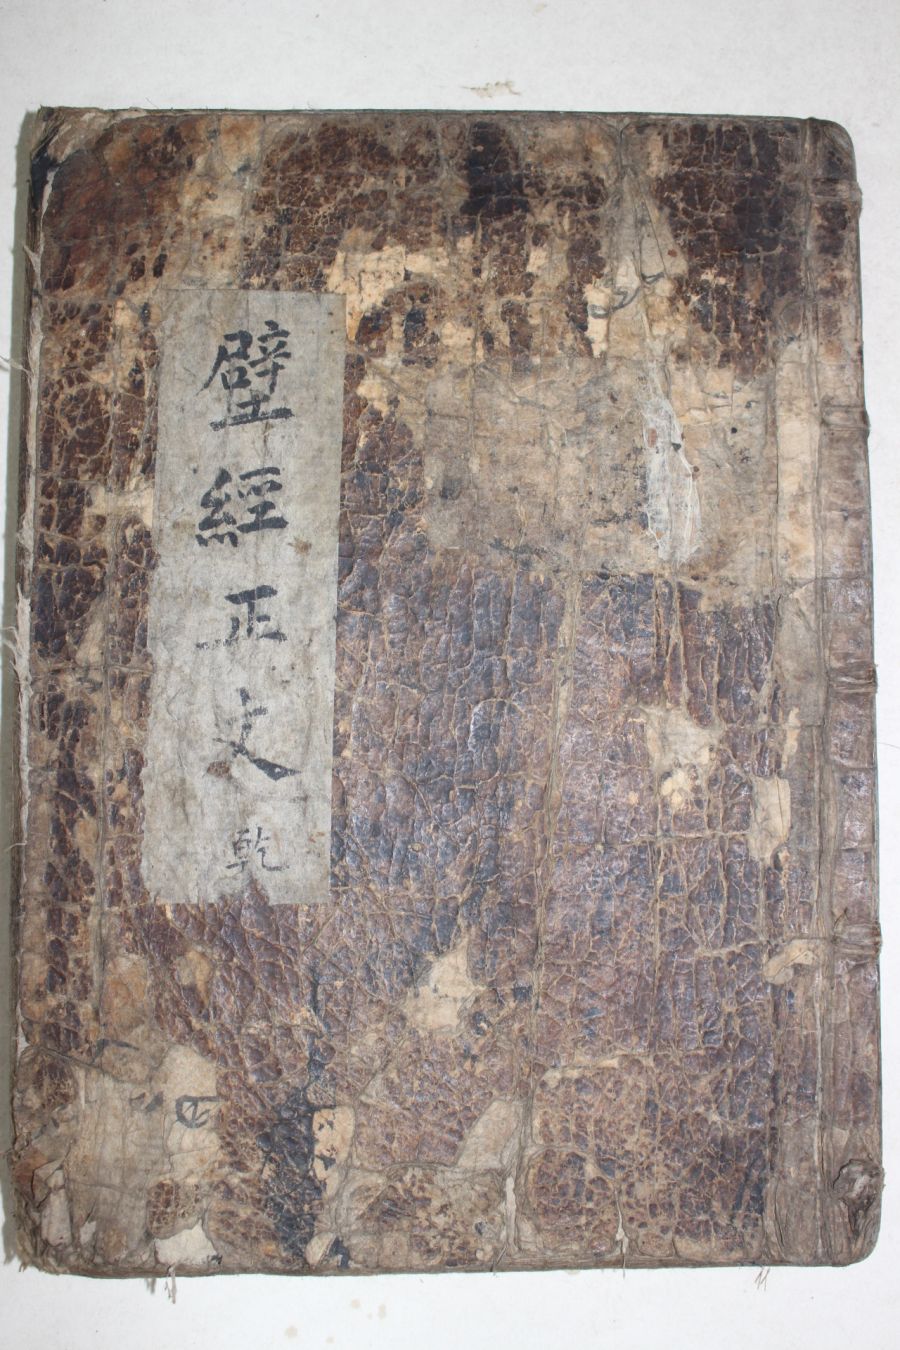 壁經正文 乾